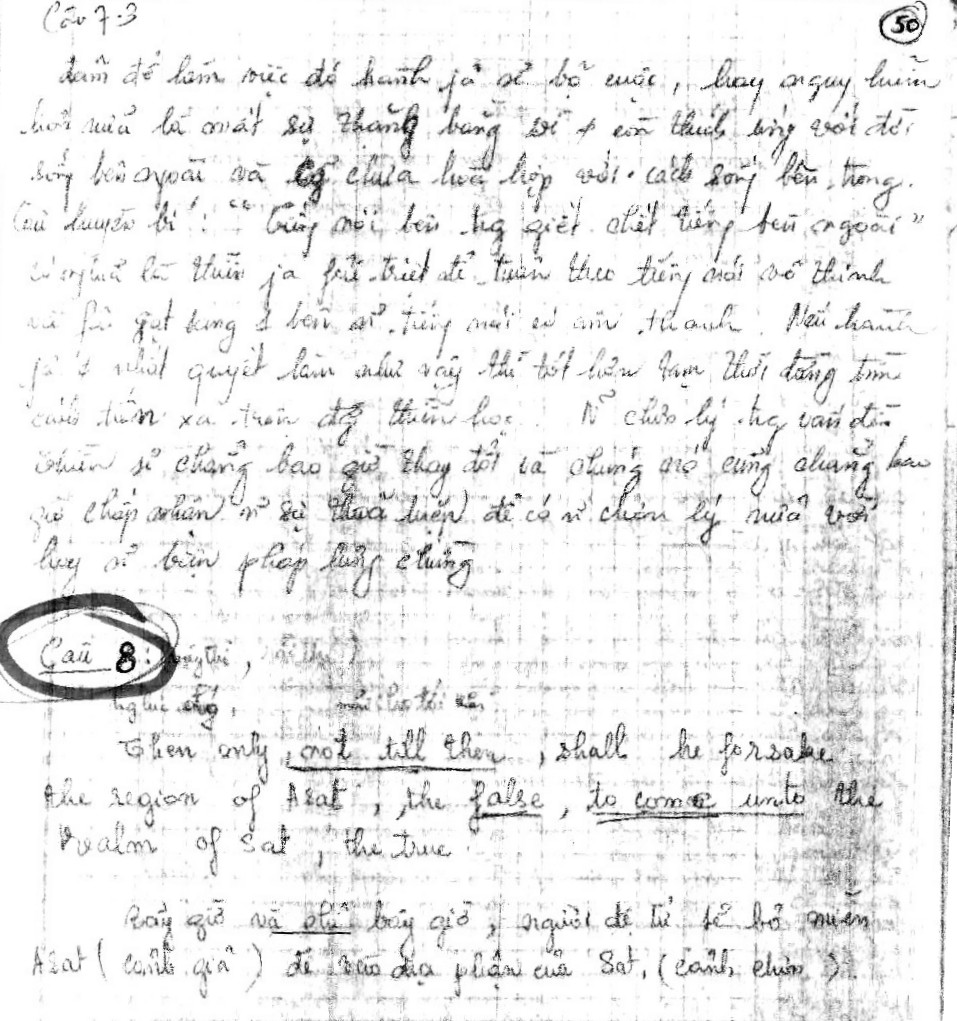 Câu 7.3
50
đảm để làm việc đó hành jả sẽ bỏ cuộc, hay nguy hiểm
hơn nữa là mất sự thăng bằng vì còn thích ứng với đời
sống bên ngoài và chưa hoà hợp với cách sống bên trong.
Câu huyền bí : " tiếng nói bên tg giết chết tiếng bên ngoài "
có nghĩa là thiền jả fải triệt để tuân theo tiếng nói vô thinh
và fải gạt sang 1 bên n~ tiếng nói có âm thanh. Nếu hành
jả nhất quyết làm như vậy thì tốt hơn tạm thời đừng tìm
cách tiến xa trên đg thiền học. N~ chân lý tg vấn đề
thiền sẽ chẳng bao giờ thay đổi và chúng nó cũng chẳng bao
giờ chấp nhận n~ sự thoả hiệp để có n~ chân lý nửa vời
hay n~ biện pháp lưng chừng
Câu 8 :
Then only, not till then, shall he forsake
the region of Asat, the false, to come unto the
Realm of Sat, the true
Bây giờ và chỉ bây giờ, người đệ tử sẽ bỏ miền
Asat ( cảnh giả ) để vào địa phận của Sat, ( cảnh chơn ).